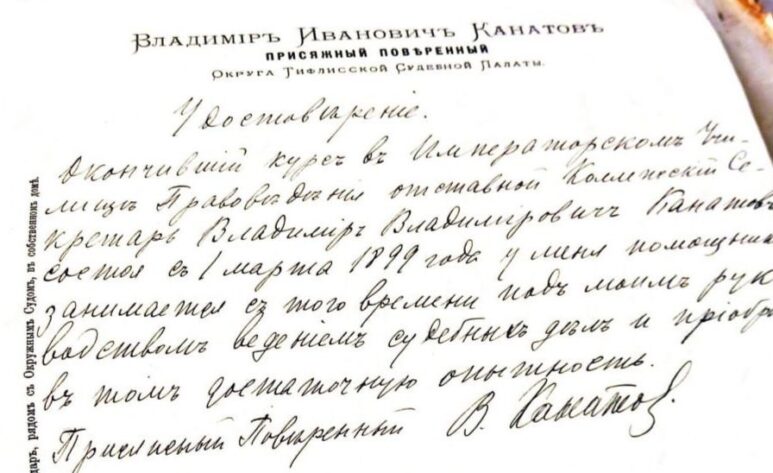 Владиміръ Ивановичъ Канатовъ
ПРИСЯЖНЫЙ ПОВѢРЕННЫЙ
Округа Тифлисской Судебной Палаты.
Удостовѣреніе.
Окончившій курсъ въ Императорскомъ Учи-
лищѣ Правовѣдѣнія отставной Коллежскій Се-
кретарь Владиміръ Владиміровичъ Канатовъ
состоя съ 1 марта 1899 года у меня помощник
занимается съ того времени подъ моимъ рук
водствомъ веденіемъ судебныхъ дѣлъ и пріобр
въ томъ достаточную опытность.
Присяжный Повѣренный В. Канатов.
даръ, рядомъ съ Окружнымъ Судомъ, въ собственномъ домѣ.